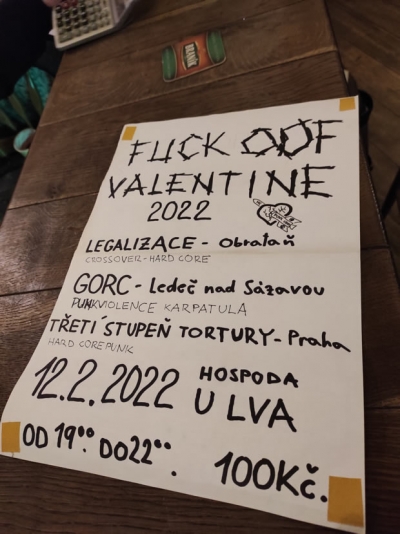 BRANÍK
FUCK OOF
VALENTINE
2022
LEGALIZACE - Obrataň
CROSSOVER - HARD CORE
GORC - Ledeč nad Sázavou
PUNKVIOLENCE KARPATULA
TŘETÍ STUPEŇ TORTURY - Praha
HARD CORE PUNK
12.2.2022 HOSPODA
U LVA
OD 19°° DO 22°°. 100Kč.